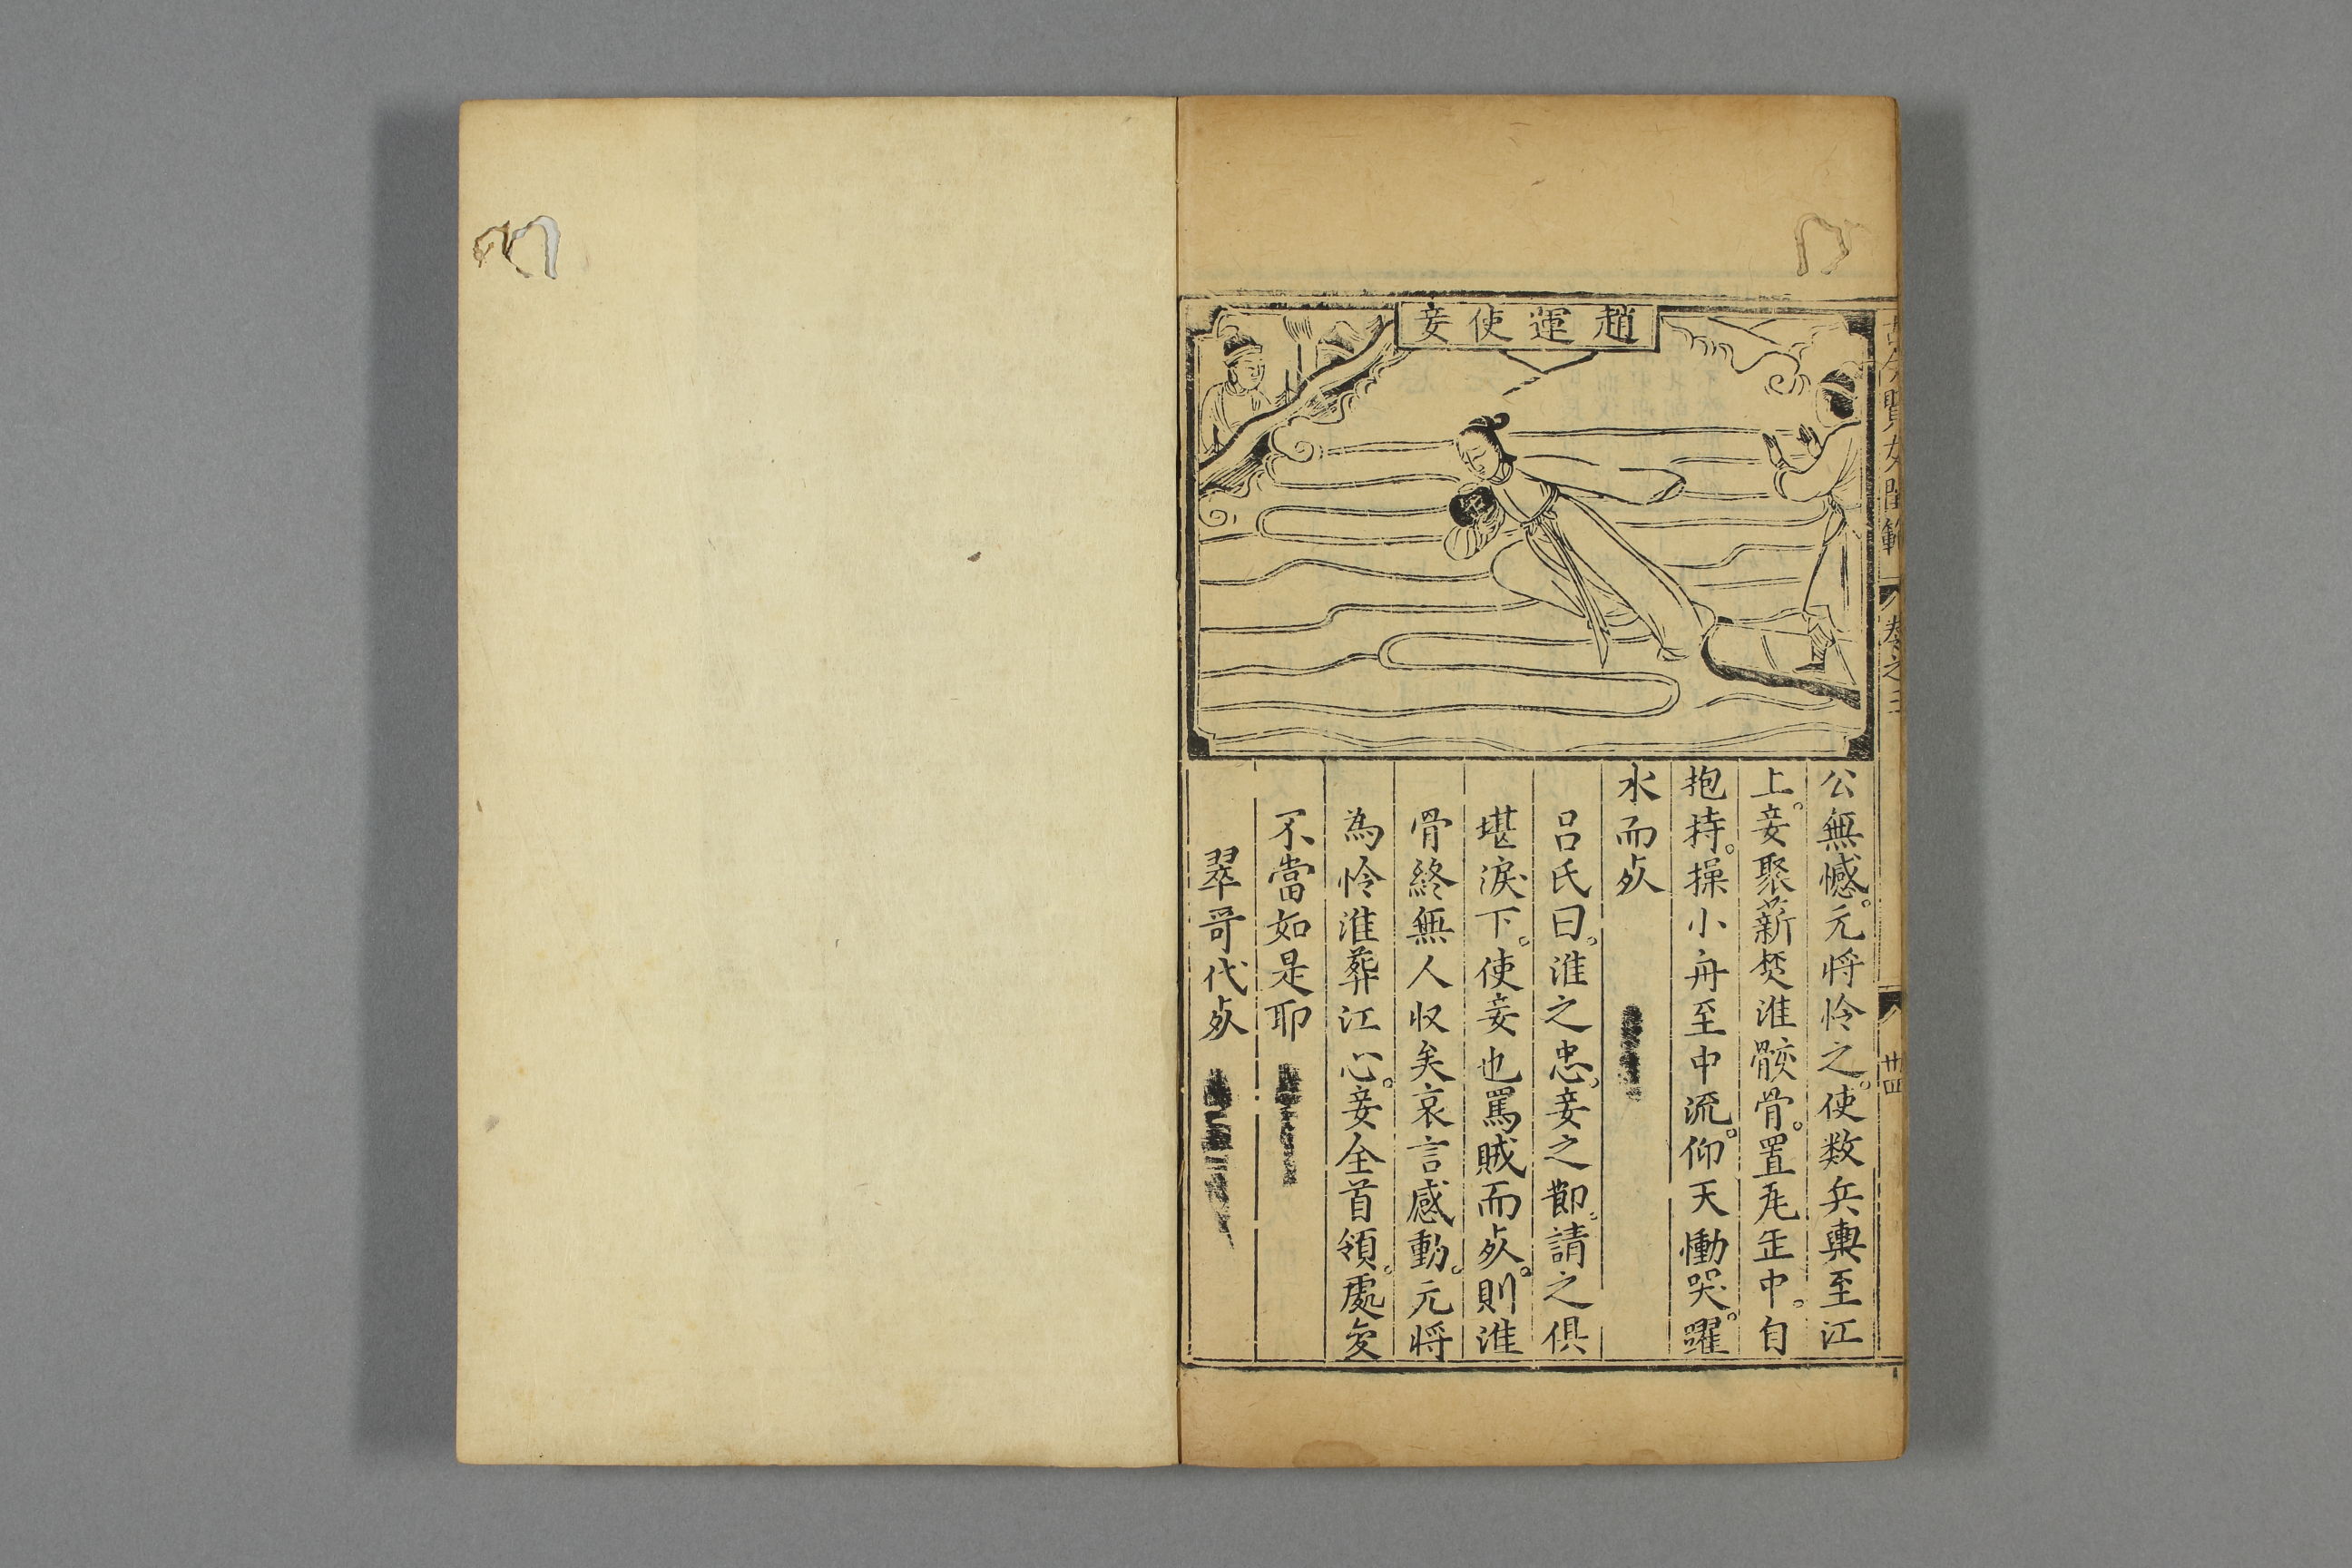 趙運使妾
公無憾。元將怜之。使数兵輿至江
上。妾聚薪焚淮骸骨。置㽃缶中。自
抱持。操小舟至中流。仰天慟哭。躍
水而死
呂氏曰。淮之忠。妾之節。請之俱
堪淚下。使妾也罵賊而死。則淮
骨終無人收矣哀言感動。元將
為怜淮葬江心。妾全首領。處変
不當如是耶
翠哥代死
古今賢女閨範
卷之三
卅四